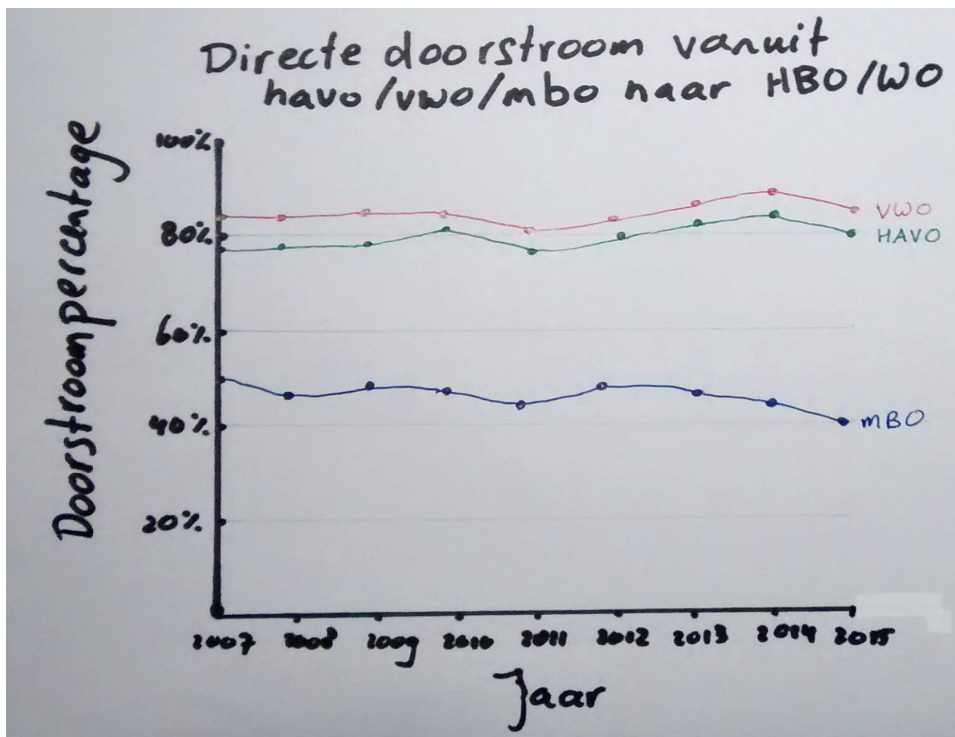 Directe doorstroom vanuit
havo/vwo/mbo naar HBO/WO
Doorstroompercentage
100%
80%
60%
40%
20%
VWO
HAVO
MBO
2007 2008 2009 2010 2011 2012 2013 2014 2015
Jaar